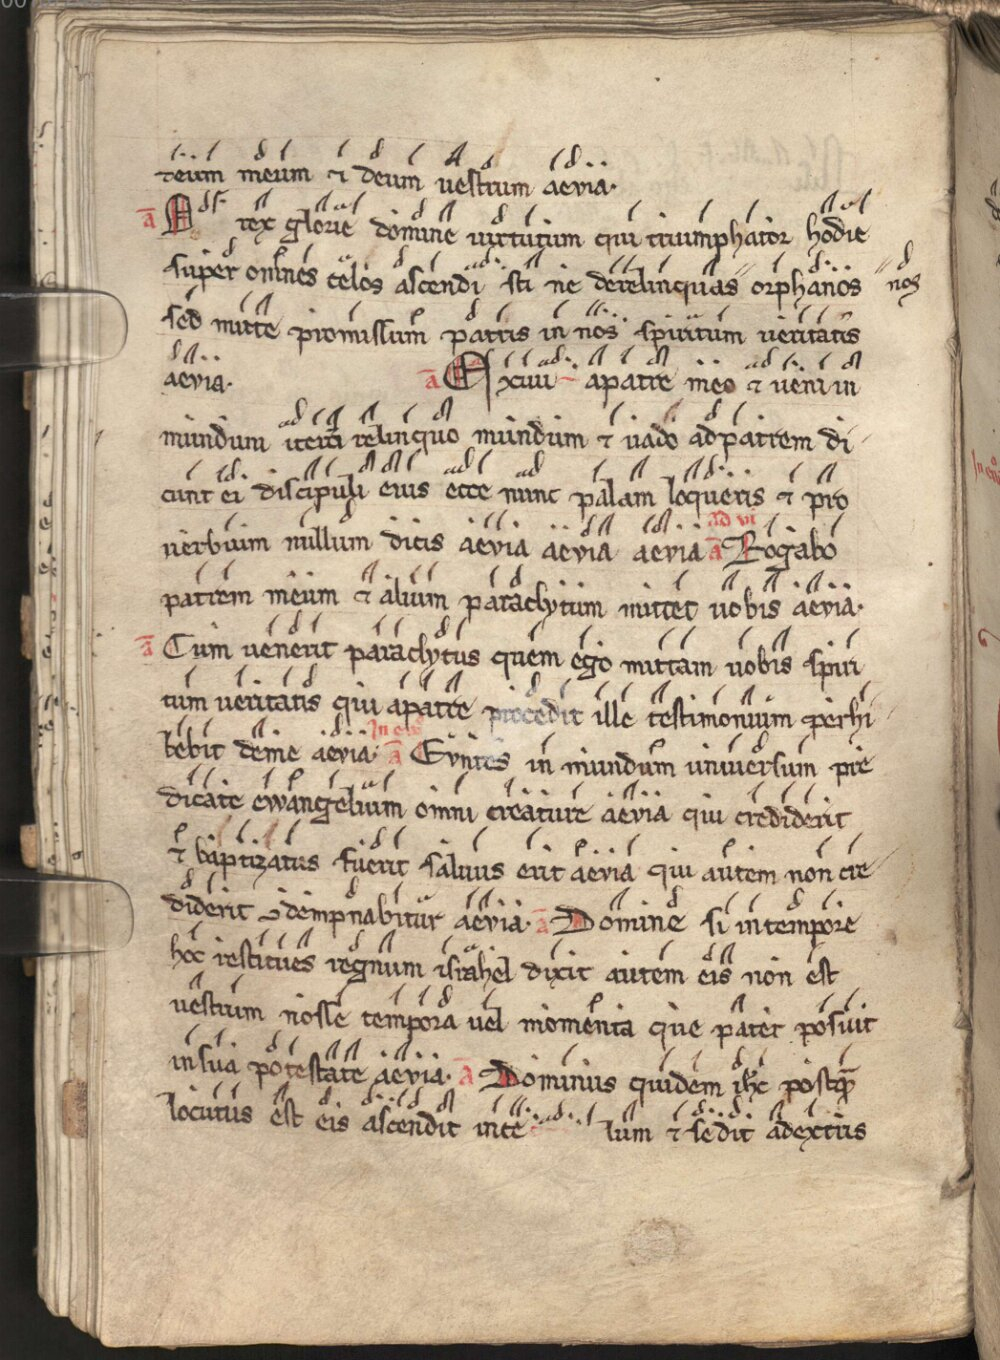 teum meum ⁊ deum uestrum aevia.
a O rex glorie domine uirtutum qui triumphator hodie
super omnes celos ascendisti ne derelinquas orphanos nos
sed mitte promissum patris in nos spiritum ueritatis
aevia. a Exiui apatre meo ⁊ ueni in
mundum iterū relinquo mundum ⁊ uado adpatrem di
cunt ei discipuli eius ecce nunc palam loqueris ⁊ pro
uerbium nullum dicis aevia aevia aevia ad vi a Rogabo
patrem meum ⁊ alium paraclytum mittet uobis aevia.
a Cum uenerit paraclytus quem ego mittam uobis spiri
tum ueritatis qui apatre procedit ille testimonium perhi
bebit deme aevia. In ev a Evntes in mundum uniuersum pre
dicate ewangelium omni creature aevia qui crediderit
⁊ baptizatus fuerit saluus erit aevia qui autem non cre
diderit ꝯdempnabitur aevia. a Domine si intempore
hoc restitues regnum israhel dixit autem eis non est
uestrum nosse tempora uel momenta que pater posuit
insua potestate aevia. a Dominus quidem ihc postqꝫ
locutus est eis ascendit ince lum ⁊ sedit adextris